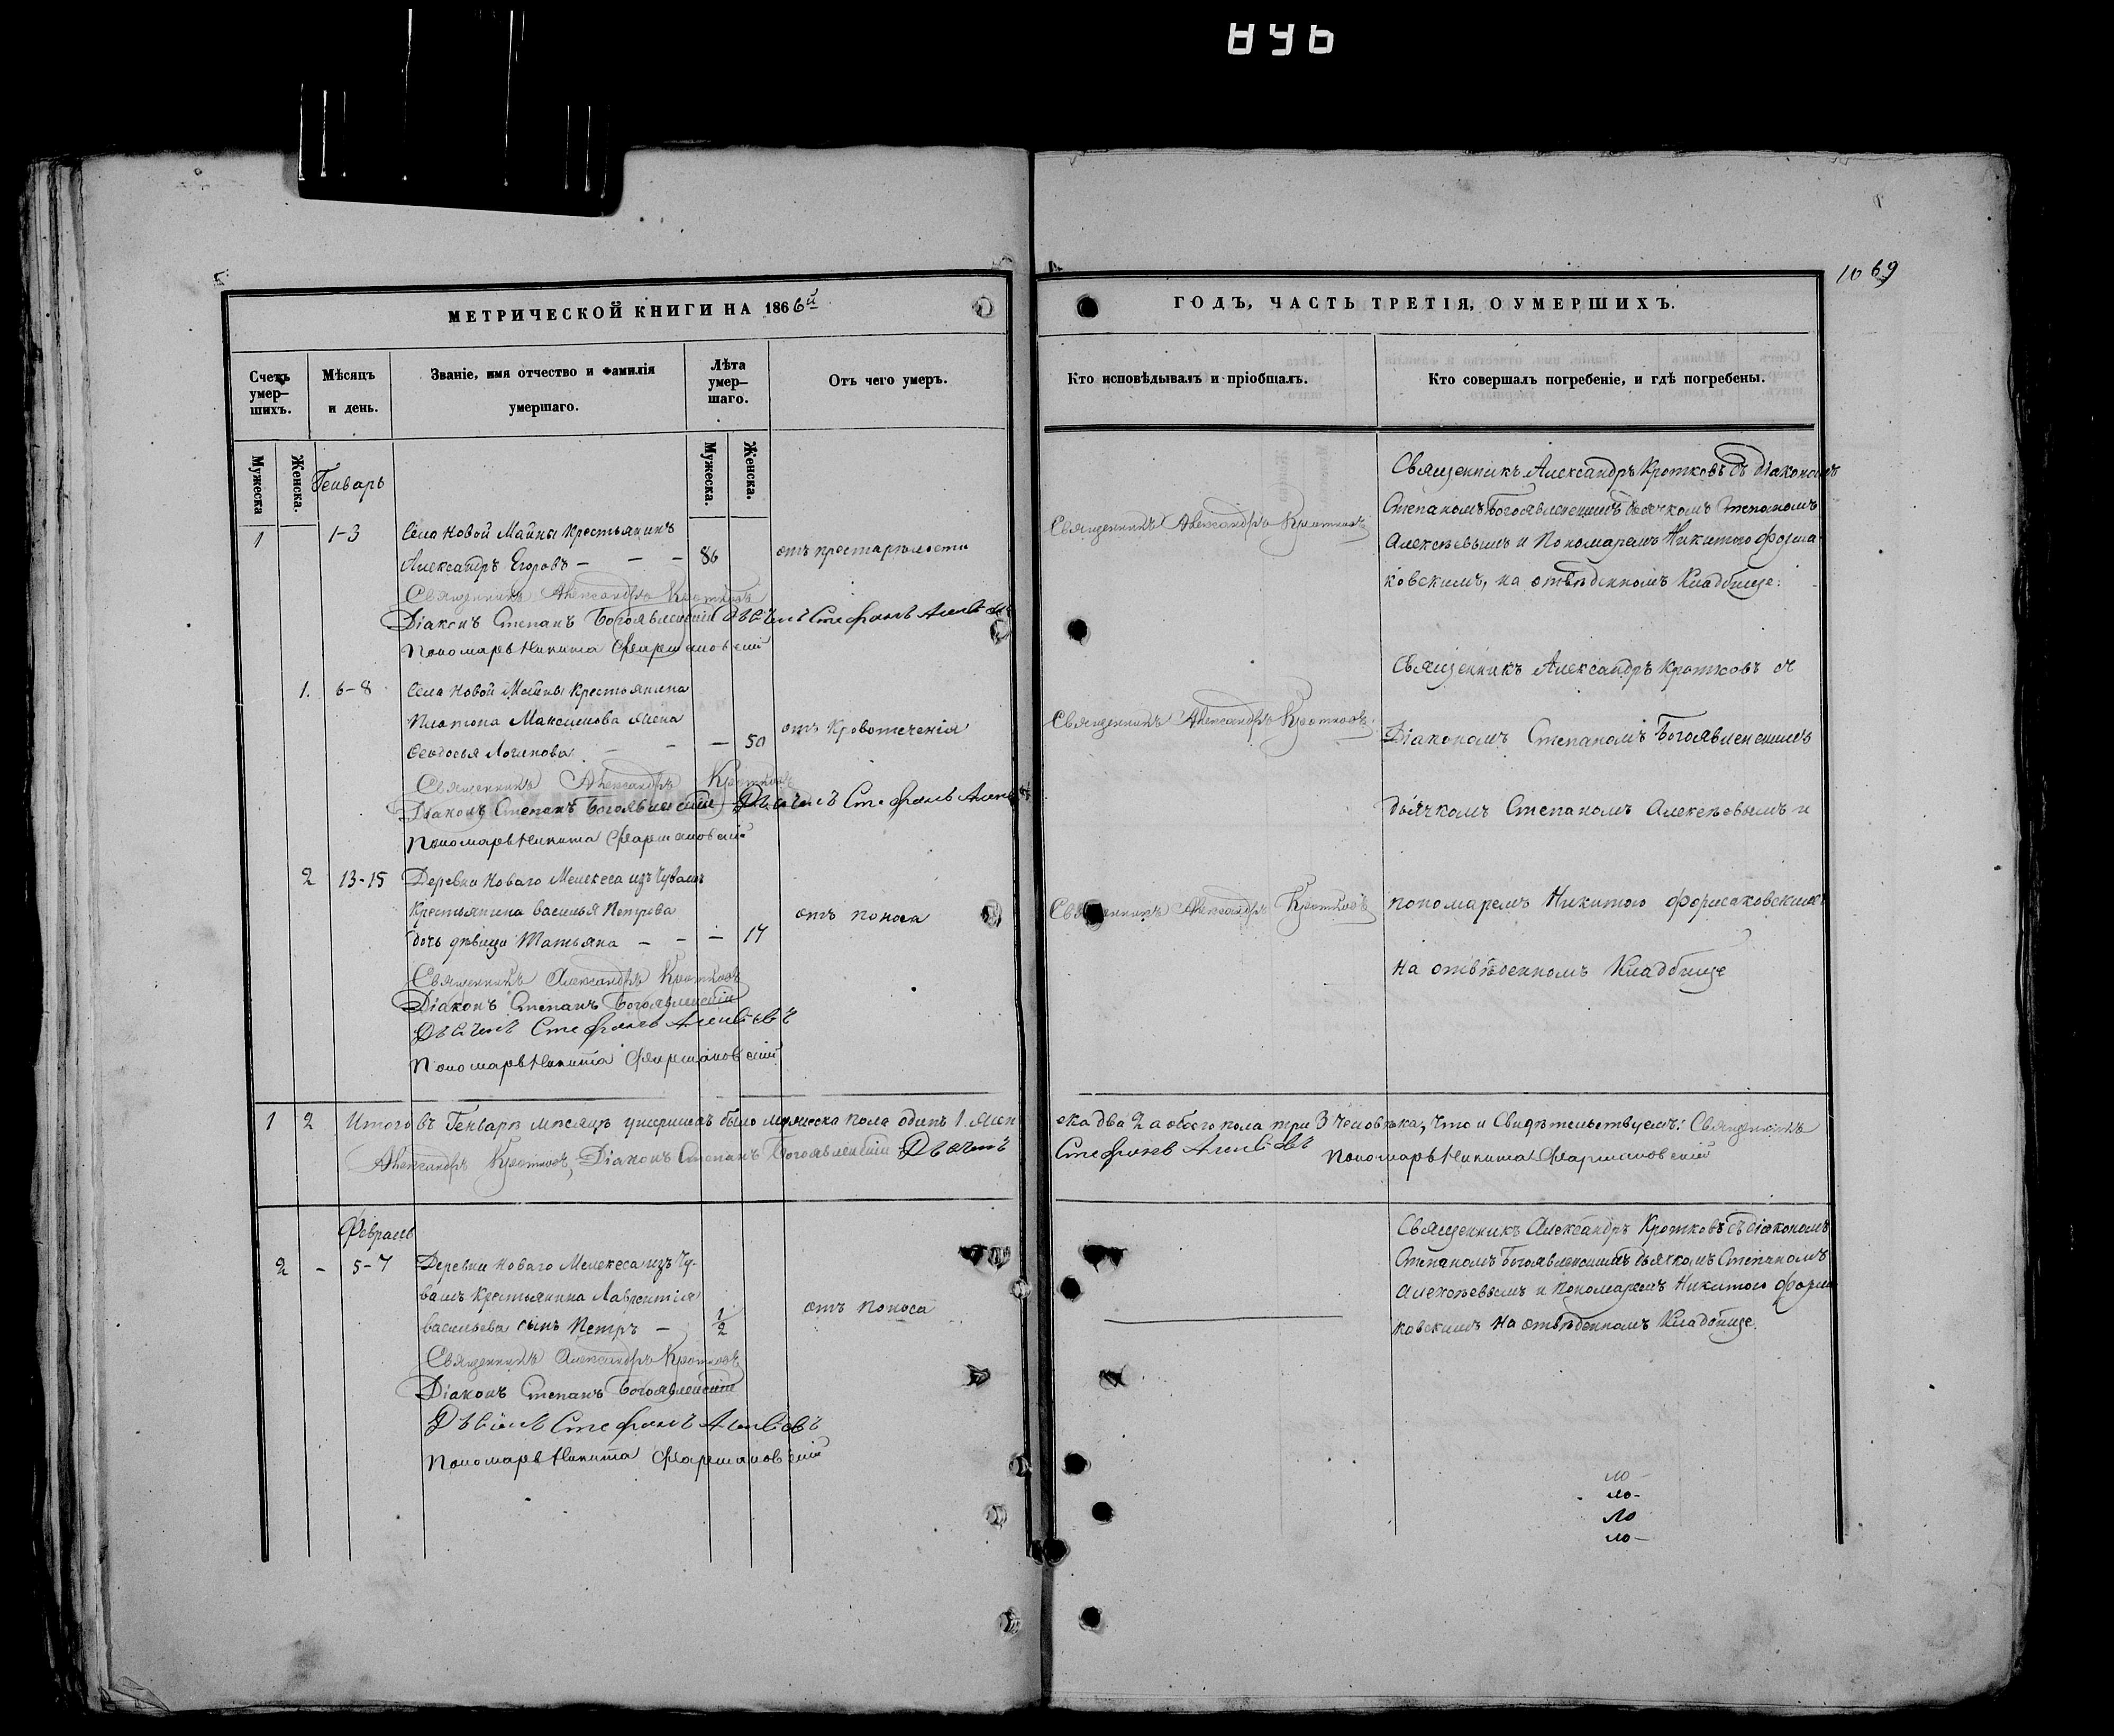 896
1069
МЕТРИЧЕСКОЙ КНИГИ НА 1866й
ГОДЪ, ЧАСТЬ ТРЕТІЯ, О УМЕРШИХЪ.
Счетъ умер-
шихъ.
Мѣсяцъ
и день.
Званіе, имя отчество и фамилія
умершаго.
Лѣта
умер-
шаго.
Отъ чего умеръ.
Кто исповѣдывалъ и пріобщалъ.
Кто совершалъ погребеніе, и гдѣ погребены.
Мужеска
Женска.
Мужеска.
Женска.
Генварь
1
1-3
Села Новой Майны Крестьянинъ
Александръ Егоровъ — — —
86
отъ престарѣлости
Священникъ Александръ Кротковъ
Священникъ Александръ Кротковъ съ діакономъ
Степаномъ Богоявленскимъ дьячкомъ Степаномъ
Алексѣевымъ и Пономаремъ Никитою Форма
ковскимъ, на отвѣденномъ Кладбище.
Священникъ Александръ Кротковъ
Діаконъ Степанъ Богоявленскій Дьячекъ Стефанъ
Пономарь Никита
1. 6-8
Села Новой Майны Крестьянина
Платона Максимова жена
Ѳеодосья Логинова — — —
50
отъ Кровотеченія
Священникъ Александръ Кротковъ
Священникъ Александръ Кротковъ съ
Діакономъ Степаномъ Богоявленскимъ
дьячкомъ Степаномъ Алексѣевымъ и
пономаремъ Никитою
на отвѣденномъ Кладбище
Священникъ Александръ Кротковъ
Діаконъ Степанъ Богоявленскій Дьячекъ Стефанъ
Пономарь Никита
2 13-15
Деревни Новаго Мелекеса изъ Чувашъ
Крестьянина Василья Петрова
дочь дѣвица Татьяна — — —
17
отъ поноса
Священникъ Александръ Кротковъ
Священникъ Александръ Кротковъ
Діаконъ Степанъ Богоявленскій
Дьячекъ Стефанъ Алексѣевъ
Пономарь Никита
1 2 Итого въ Генварѣ мѣсяцѣ умершихъ было мужеска пола одинъ 1 жен
ска два 2 а обоего пола три 3 человѣка, что и Свидѣтельствуемъ: Священникъ
Александръ Кротковъ, Діаконъ Степанъ Богоявленскій Дьячекъ
Стефанъ Алексѣевъ Пономарь Никита
Февраль
2 — 5-7
Деревни Новаго Мелекеса изъ Чу-
вашъ Крестьянина Лаврентія
Васильева сынъ Петръ —
1/2
отъ поноса
Священникъ Александръ Кротковъ съ діакономъ
Степаномъ Богоявленскимъ дьячкомъ Степаномъ
Алексѣевымъ и Пономаремъ Никитою Форма
ковскимъ на отвѣденномъ Кладбище.
Священникъ Александръ Кротковъ
Діаконъ Степанъ Богоявленскій
Дьячекъ Стефанъ Алексѣевъ
Пономарь Никита